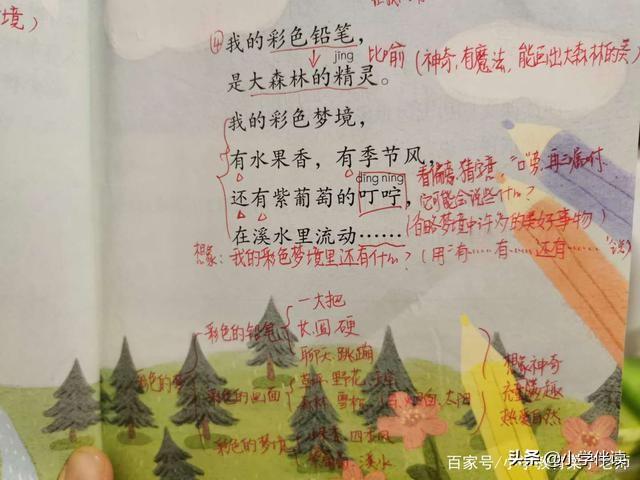 境)
④我的彩色铅笔,
jīng
是大森林的精灵。
比喻(神奇,有魔法,能画出大森林的美)
我的彩色梦境,
有水果香,有季节风,
dīng níng
还有紫葡萄的叮咛,
在溪水里流动……
看偏旁,猜字意
它可能会说些什么?
(省略梦境中许多的美好事物)
想象:我的彩色梦境里还有什么?(用"有……有……还有……"说)
一大把
彩色的铅笔
长、圆、硬
聊天、跳蹦
彩色的
彩色的画面
草坪、野花、
森林、雪松、太阳
彩色的梦境
四季风
溪水
想象神奇
充满趣
热爱自然
百家号/小学教育
头条 @小学伴读